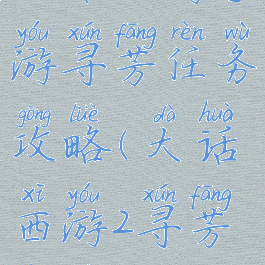 yóu xún fāng rèn wù
游寻芳任务
gōng lüè dà huà
攻略(大话
xī yóu xún fāng
西游2寻芳